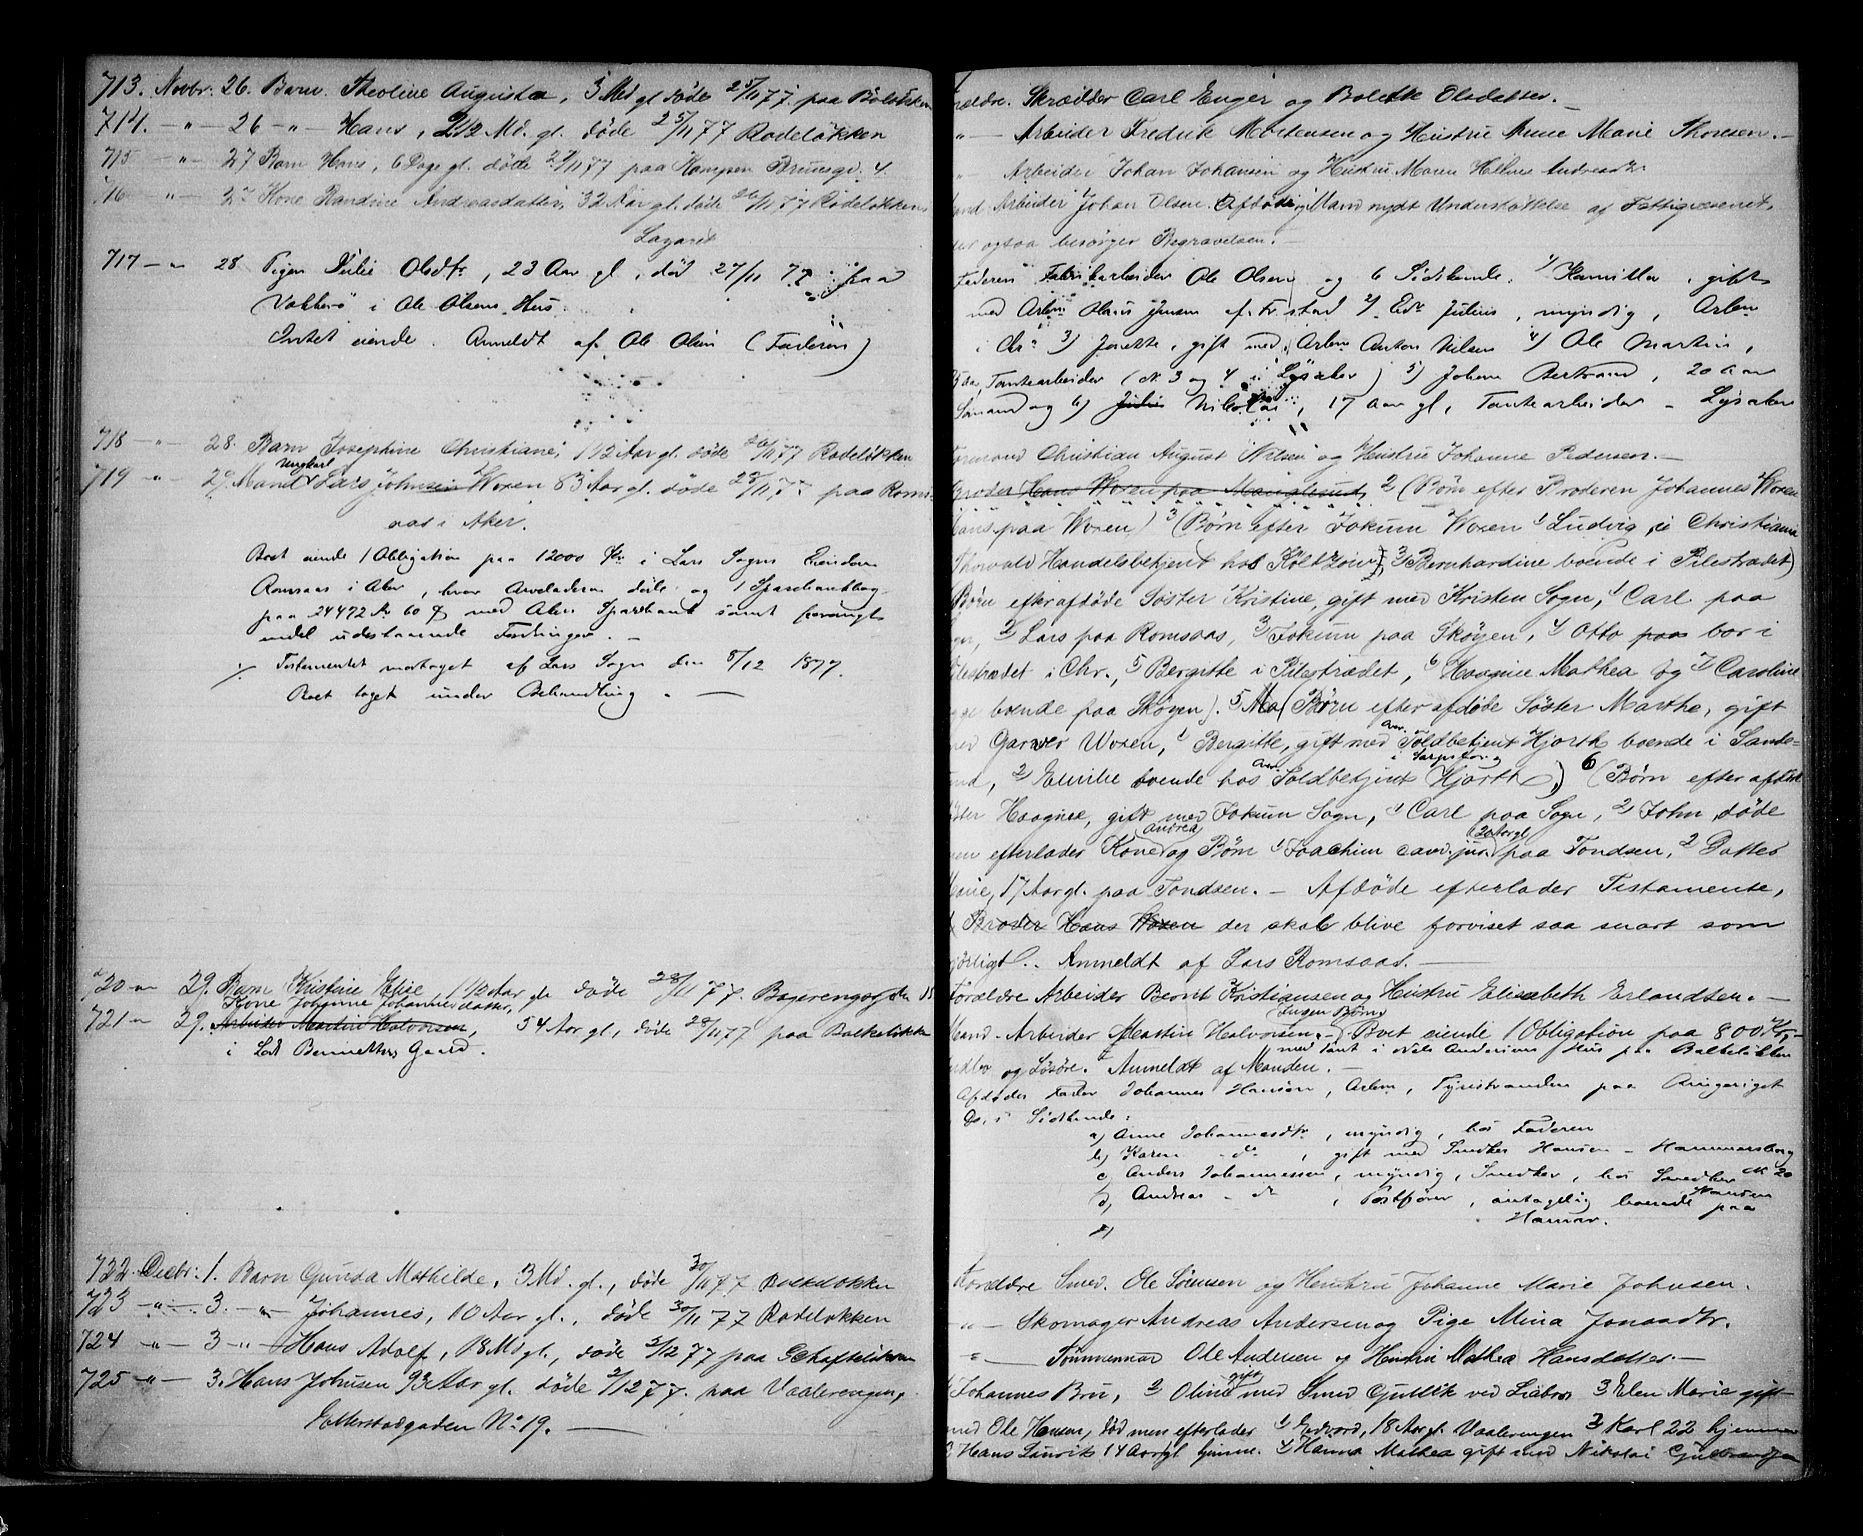 713. Novbr. 26. Barn Theoline Augusta, 3 Md gl døde 25/11 77. paa
714. -"- 26 -"- Hans, 2 1/2 Md. gl. døde 25/11 77 Rodeløkken
715 -"- 27 Barn Hans, 6 Dage gl. døde 77 paa Kampen Brunsgd. 4.
716 -"- Kone Randine Andreasdatter, 32 Aar gl. døde 26/11 77 Rodeløkkens
Lazaret
717 -"- 28 Pigen Julie Olsdtr, 23 Aar gl, død 27/11 77 paa
Vækkerø i Ole Olsens Hus.
Intet eiende. Anmeldt af Ole Olsen (Faderen)
718 -"- 28. Barn Josephine Christiane, 1 1/2 Aar gl. døde 26/11 77 Rodeløkken
Ungkarl
719 -"- 29 Mand Lars Johnsen Woxen 83 Aar gl. døde 28/11 77 paa Roms
aas i Aker.
Boet eiende 1 Obligation paa 12000 Kr i Lars Sogns Eiendom
Romsaas i Aker, hvor Arveladeren døde og 1 Sparebankbog
paa 24472 Kr 60 Ø med Akers Sparebank samt forøvrigt
endel udestaaende Fordringer. -
Testamentet modtaget af Lars Sogn den 8/12 1877.
Boet taget under Behandling. -
720 -"- 29. Barn Kristine Elise 1 1/2 Aar gl. døde 28/11 77. Bagerengegden 15
Kone Johanne Johannesdatter,
721 -"- 29. Arbeider Martin Halvorsen, 54 Aar gl, døde 28/11 77 paa Balkeløkken
i Bennetters Gaard.
722 Decbr. 1. Barn Gunda Mathilde, 3 Md. gl., døde 30/11 77 Balkeløkken
723 -"- 3. -"- Johannes, 10 Aar gl., døde 30/11 77 Rodeløkken
724 -"- 3 -"- Hans Adolf, 18 Md gl., døde 2/12 77 paa
725 -"- 3. Hans Johnsen 93 Aar gl. døde 2/12 77. paa Vaalerengen,
Etterstadgaden No 19. -
Skrædder Carl Enger og Bolette Olsdatter. -
-"- Arbeider Fredrik Mortensen og Hustru Anne Marie Thoresen. -
-"- Arbeider Johan Johansen og Hustru Maren Andreasdtr.
Arbeider Johan Olsen. Afdøde og Mand nydt Understøttelse af Fattigvæsenet,
der ogsaa besørger Begravelsen. -
Faderen Fabrikarbeider Ole Olsen og 6 Sødskende. 1) Kamilla, gift
med Arbm Olaus Jensen af 2) Edv Julius, myndig, Arbm
i Chra 3) Josette, gift med Arbm Anton Nilsen 4) Ole Martin,
Tomtearbeider (N. 3 og 4 i Lysaker) 5) Johan Bertrand, 20 Aar
Sømand og 6) Julius Nikolai, 17 Aar gl, Tomtearbeider - Lysaker
Formand Christian August Nilsen og Hustru Johanne Pedersen. -
Broder Hans Woxen paa 2 (Børn efter Broderen Johannes Woxen
Hans paa Woxen) 3 (Børn efter Jokum Woxen 1 Ludvig, i Christiania
Thorvald Handelsbetjent hos 3 Bernhardine boende i Pilestrædet)
Børn efter afdøde Søster Kristine, gift med Kristen Sogn, 1 Carl paa
2) Lars paa Romsaas, 3) Jokum paa Skøyen, 4) Otto paa bor i
Pilestrædet i Chr., 5) Bergitte i Pilestrædet, 6) Haagine Mathea og 7) Caroline
boende paa Skøyen). 5 Ma (Børn efter afdøde Søster Marthe, gift
med Garver Woxen, 1) Bergitte, gift med Toldbetjent Hjorth boende i Sande-
i Sarpsborg
sund, 2) Emilie boende hos Toldbetjent Hjorth), 6 (Børn efter afdøde
Søster Haagine, gift med Jokum Sogn, 1) Carl paa Sogn, 2) John, døde
Andrea 20 Aar gl
men efterlader Kone og Børn 1) Joachim cand. jur. paa Tondsen, 2 Datter
Marie, 17 Aar gl. paa Tondsen. - Afdøde efterlader Testamente,
Broder Hans Woxen der skal blive forvist saa snart som
Anmeldt af Lars Romsaas. -
Forældre Arbeider Bernt Kristiansen og Hustru Elisabeth Erlandsen. -
Ingen Børn
Mand - Arbeider Martin Halvorsen. - Boet eiende 1 Obligation paa 800 Kr, -
med Pant i Niels Andersens Hus paa Balkeløkken
Indbo og Løsøre. Anmeldt af Manden. -
Afdødes Fader Johannes Hansen, Arbm, Tyristranden paa Ringeriget
Do. 5 Sødskende:
a) Anne Johannesdtr, myndig, hos Faderen
b) Karen - do, gift med Snedker Hansen - Hammersborg
c) Anders Johannessen, myndig, Snedker, hos Snedker N 20
Hansen
d) Andreas - do, Postfører, antagelig boende paa
Hamar.
Forældre Smed. Ole Sørensen og Hustru Johanne Marie Johnsen.
-"- Skomager Andreas Andersen og Pige Mina Jonasdtr.
-"- Tømmermand Ole Andersen og Hustru Mathea Hansdatter. -
gift
Johannes Bru, 2 Oline med Smed Gullik ved Liabro 3 Elen Marie gift
med Ole Hansen, død men efterlader 1) Edvard, 18 Aar gl. Vaalerengen 2) Karl 22 hjemme
3 Hans Laurik 14 Aar gl hjemme. 4 Hanna Mathea gift med Nikolai